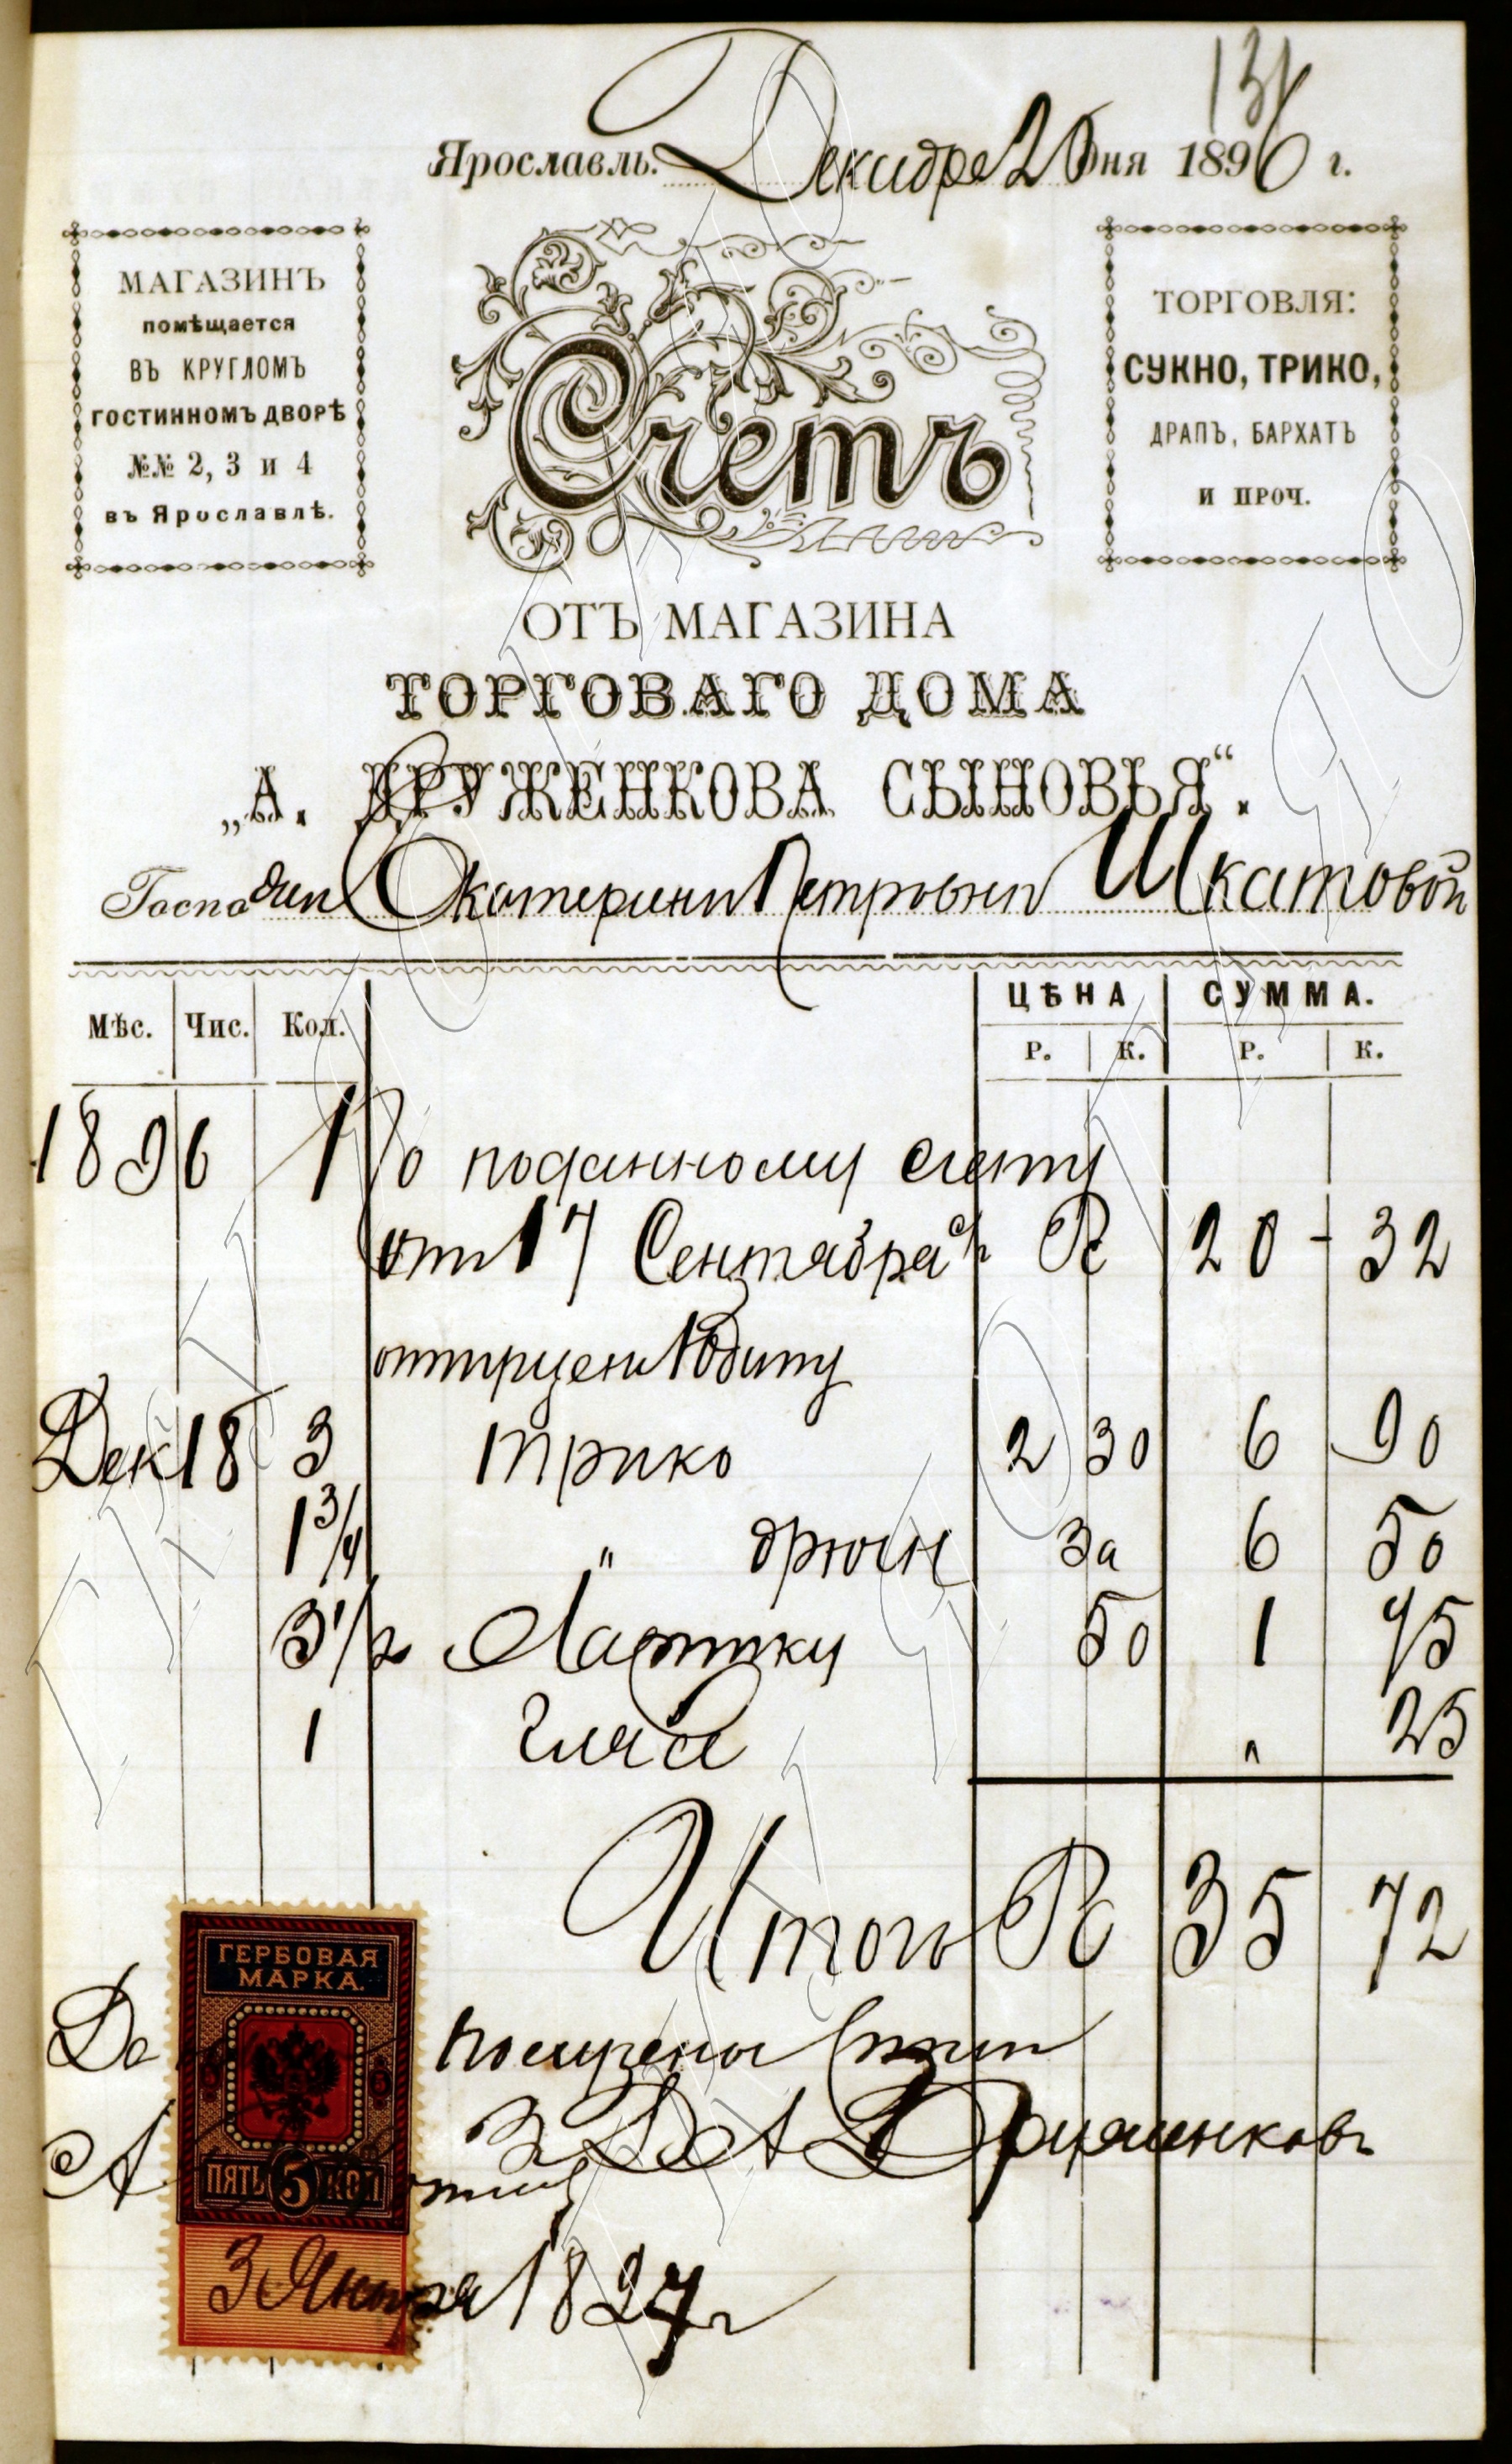 131
Ярославль. Декабре 20 дня 1896 г.
МАГАЗИНЪ
помѣщается
ВЪ КРУГЛОМЪ
ГОСТИННОМЪ ДВОРѢ
№№ 2, 3 и 4
въ Ярославлѣ.
Счетъ
ТОРГОВЛЯ:
СУКНО, ТРИКО,
ДРАПЪ, БАРХАТЪ
И ПРОЧ.
ОТЪ МАГАЗИНА
ТОРГОВАГО ДОМА
„А. ДРУЖЕНКОВА СЫНОВЬЯ“.
Екатерины Петровны Шкатовой
Мѣс. Чис. Кол. ЦѢНА СУММА.
Р. К. Р. К.
1896 По поданному счету
от 17 Сентября с/г R 20 - 32
Дек 18 3 трико 2 30 6 90
1 3/4 " брюки за 6 50
3 1/2 50 1 75
1 " 25
Итого R 35 72
ГЕРБОВАЯ
МАРКА.
ТД А Друженковъ
ПЯТЬ 5 КОП
3 Января 1897 г